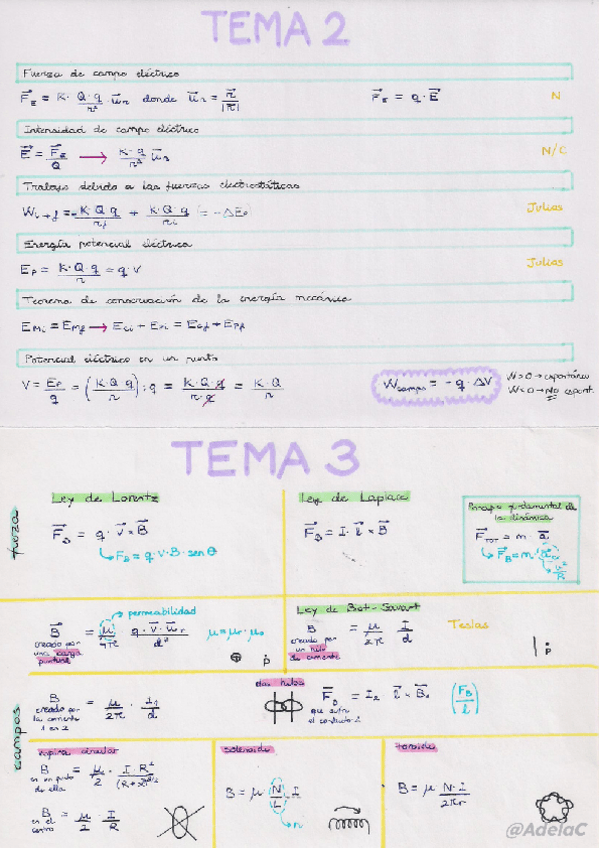 TEMA 2
Fuerza de campo eléctrico
F⃗E = K·Q·q/r² · u⃗r donde u⃗r = r⃗/|r⃗|   F⃗E = q·E⃗   N
Intensidad de campo eléctrico
E⃗ = F⃗E/Q → K·q/r² u⃗r   N/C
Trabajo debido a las fuerzas electrostáticas
Wi→f = -K·Q·q/rf + K·Q·q/ri (= -ΔEp)   Julios
Energía potencial eléctrica
Ep = K·Q·q/r = q·V   Julios
Teorema de conservación de la energía mecánica
EMi = EMf → Eci + Epi = Ecf + Epf
Potencial eléctrico en un punto
V = Ep/q = (K·Q·q/r) : q = K·Q·q/r·q = K·Q/r   Wcampo = -q·ΔV   W>0 → espontáneo
W<0 → NO espont.
TEMA 3
fuerza
Ley de Lorentz
F⃗B = q·v⃗×B⃗
FB = q·v·B·sen θ
Ley de Laplace
F⃗B = I·l⃗×B⃗
Principio fundamental de
la dinámica
F⃗TOT = m·a⃗
F⃗B = m·
campos
B⃗ creado por una carga puntual = μ/4π · q·v⃗·u⃗r/d²   μ = μr·μ0
permeabilidad
P
Ley de Biot-Savart
B creado por un hilo de corriente = μ/2π · I/d   Teslas
P
B creado por la corriente 1 en 2 = μ/2π · I1/d
dos hilos
F⃗B que sufre el conductor 2 = I2 l⃗×B⃗1   (FB/l)
espira circular
B en un punto de ella
B en el centro = μ/2 · I/R
solenoide
B = μ N/L I
n
toroide
B = μ N·I/2πr
@AdelaC